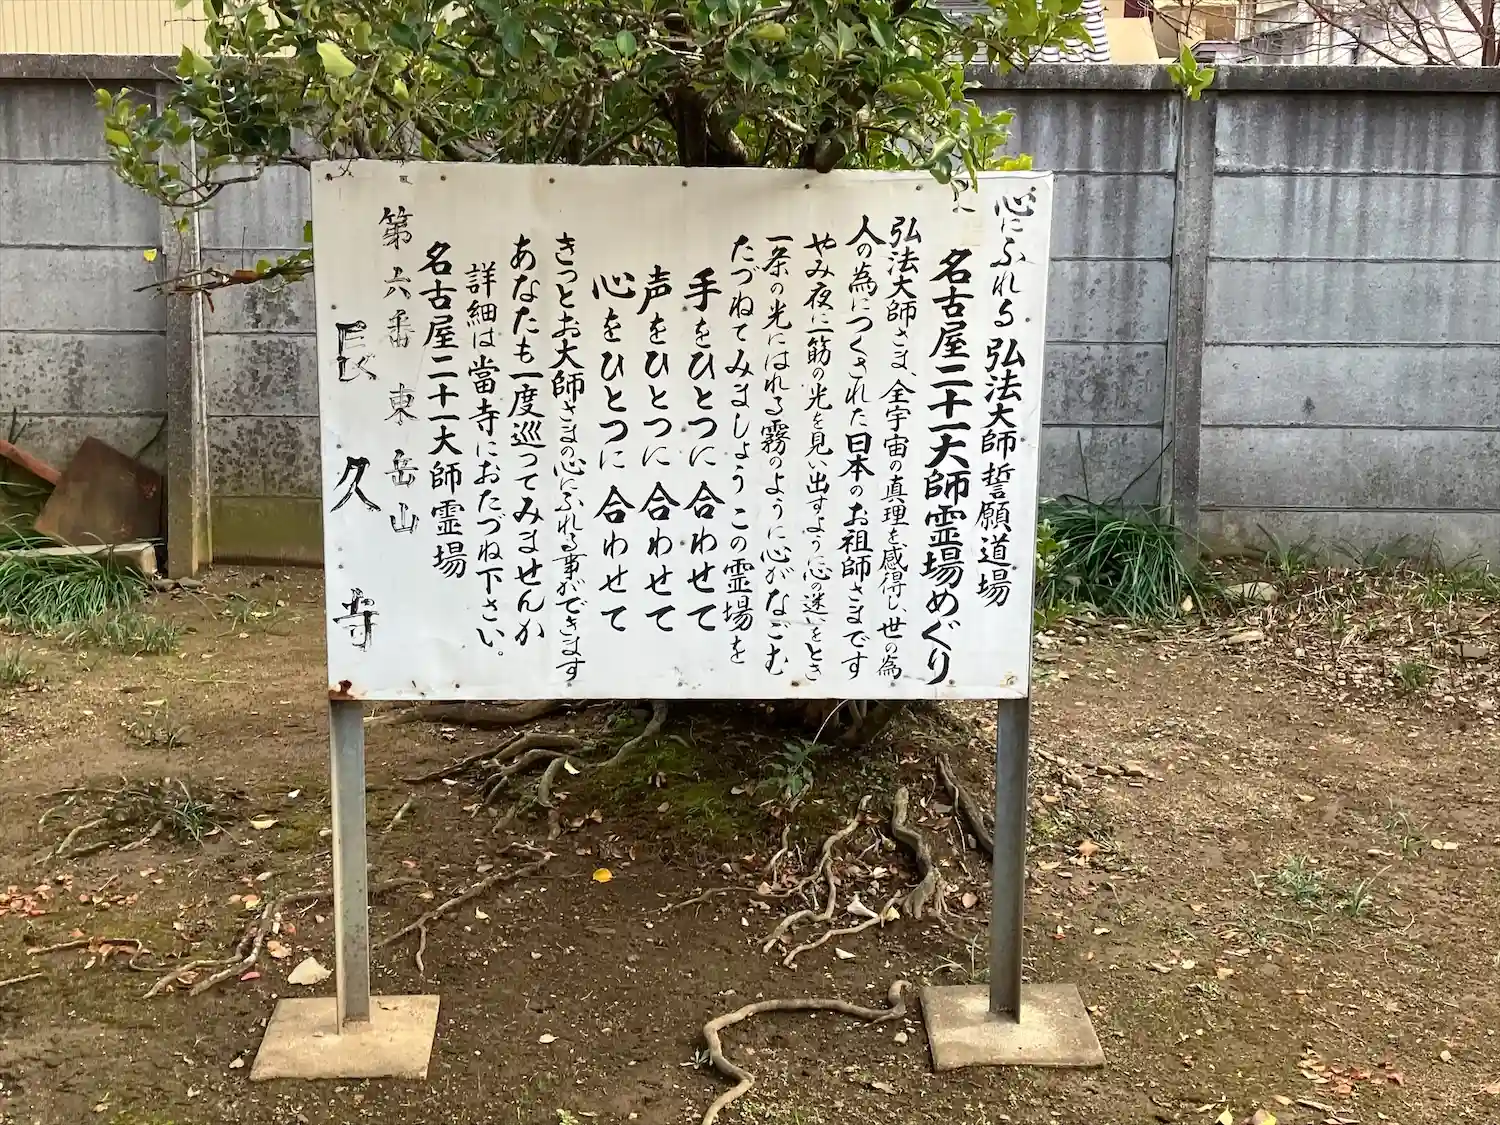 心にふれる 弘法大師誓願道場
名古屋二十一大師霊場めぐり
弘法大師さま、全宇宙の真理を感得し、世の為
人の為につくされた日本のお祖師さまです
やみ夜に一筋の光を見い出すように心の迷いをとき
一条の光にはれる霧のように心がなごむ
たづねてみましょうこの霊場を
手をひとつに合わせて
声をひとつに合わせて
心をひとつに合わせて
きっとお大師さまの心にふれる事ができます
あなたも一度巡ってみませんか
詳細は當寺におたづね下さい。
名古屋二十一大師霊場
第六番 東岳山
長久寺